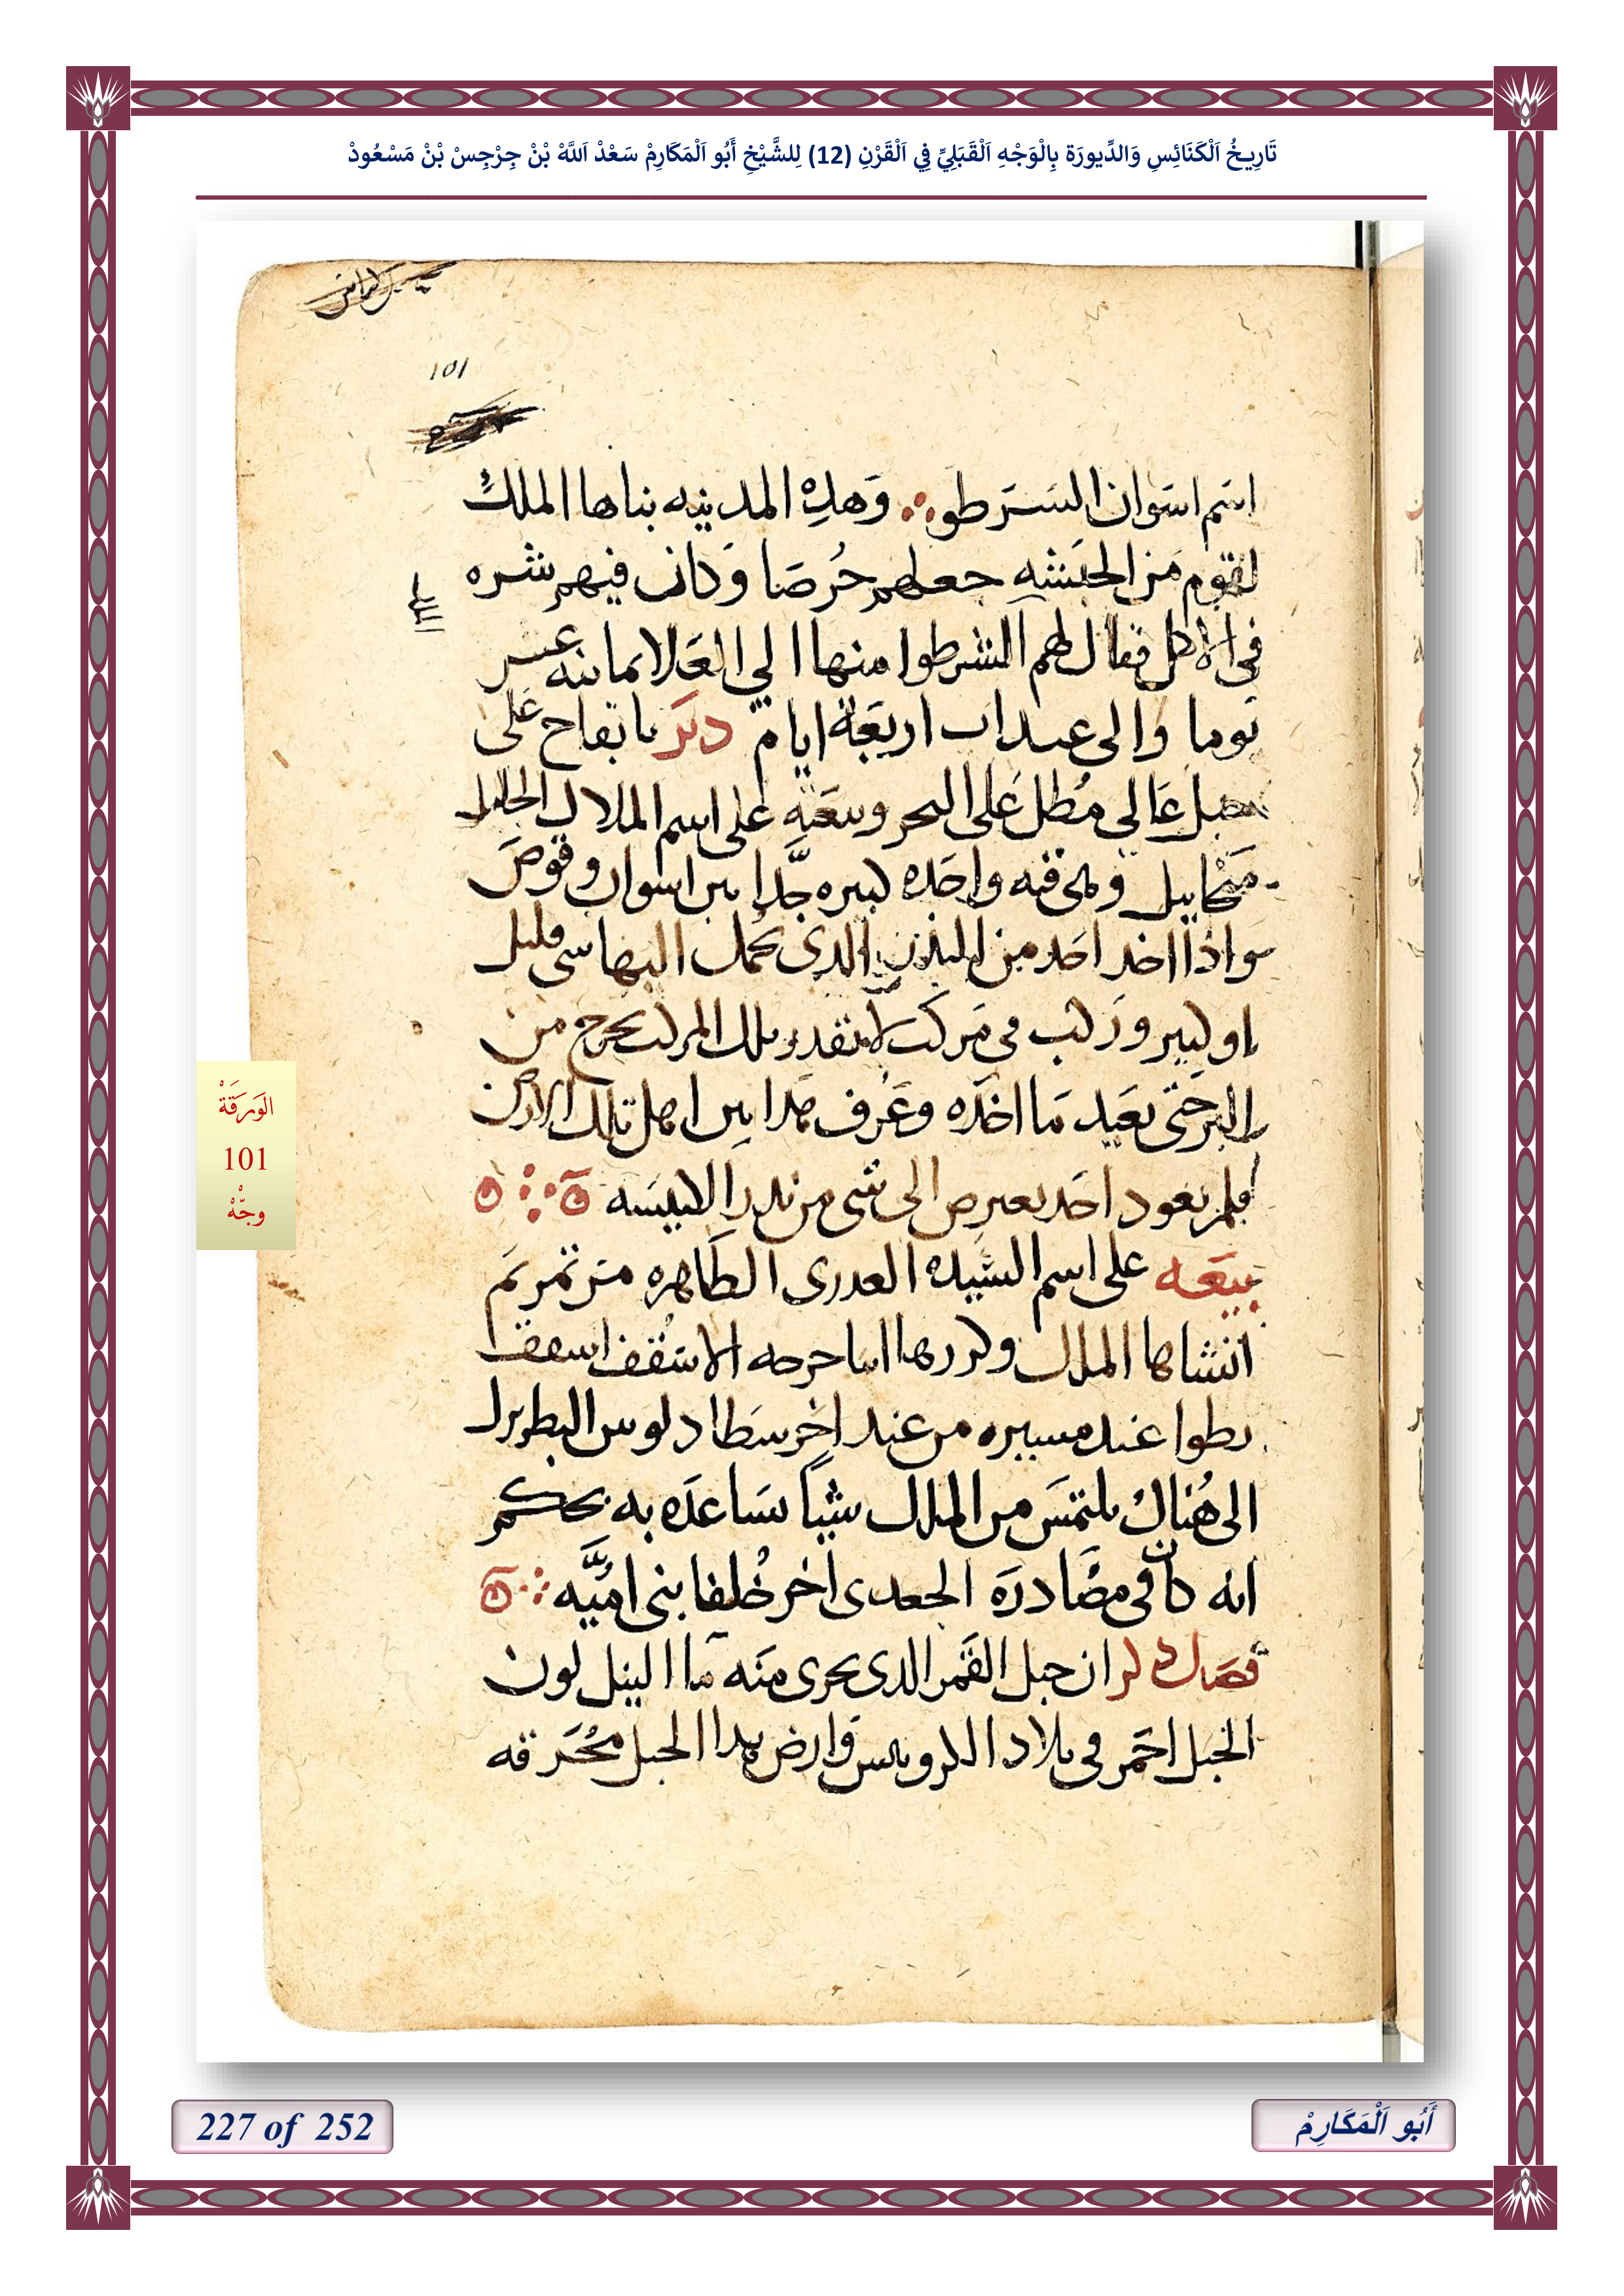 تَارِيخُ اَلْكَنَائِسِ وَالدِّيورَة بِالْوَجْهِ اَلْقَبَلِيِّ فِي اَلْقَرْنِ (12) لِلشَّيْخِ أَبُو اَلْمَكَارِمْ سَعْدْ اَللَّهْ بْنْ جِرْجِسْ بْنْ مَسْعُودْ
101
اسم اسوان السرطو وهذه المدينه بناها الملك
لقوم من الحبشه جعلهم حرصا وكان فيهم شره
فى الاكل فقال لهم اشرطوا منها الي العلا ثمانيه عشر
يوما والى عيداب اربعة ايام دير باتفاح على
جبل عالي مطل على البحر وبيعه على اسم الملاك الجليل
ميخاييل وبحر فيه واحده كبيره جدا بين اسوان وقوص
واذا اخد احد من الذى يحمل اليها شى قليل
او كبير وركب فى مركب لا تقدر تلك المركب تخرج من
البر حتى يعيد ما اخده وعرف هدا بين اهل تلك الارض
فلم يعود احد يعترض الى شى من ندر الكنيسه
بيعه على اسم السيده العدرى الطاهره مرتمريم
انشاها الملك وكررها انبا جرجه الاسقف اسقف
نطوا عند مسيره من عند اخرسطادلوس البطريرك
الى هناك يلتمس من الملك شيا يساعده به بحكم
انه كان فى مصادره الجعدى اخر خلفا بنى اميه
فصل ذكر ان جبل القمر الدى يجرى منه ما النيل لون
الجبل احمر فى بلاد الكروبيس وارض هدا الجبل محرقه
الوَرَقَةْ
101
وجّهْ
227 of 252
أَبُو اَلْمَكَارِمْ